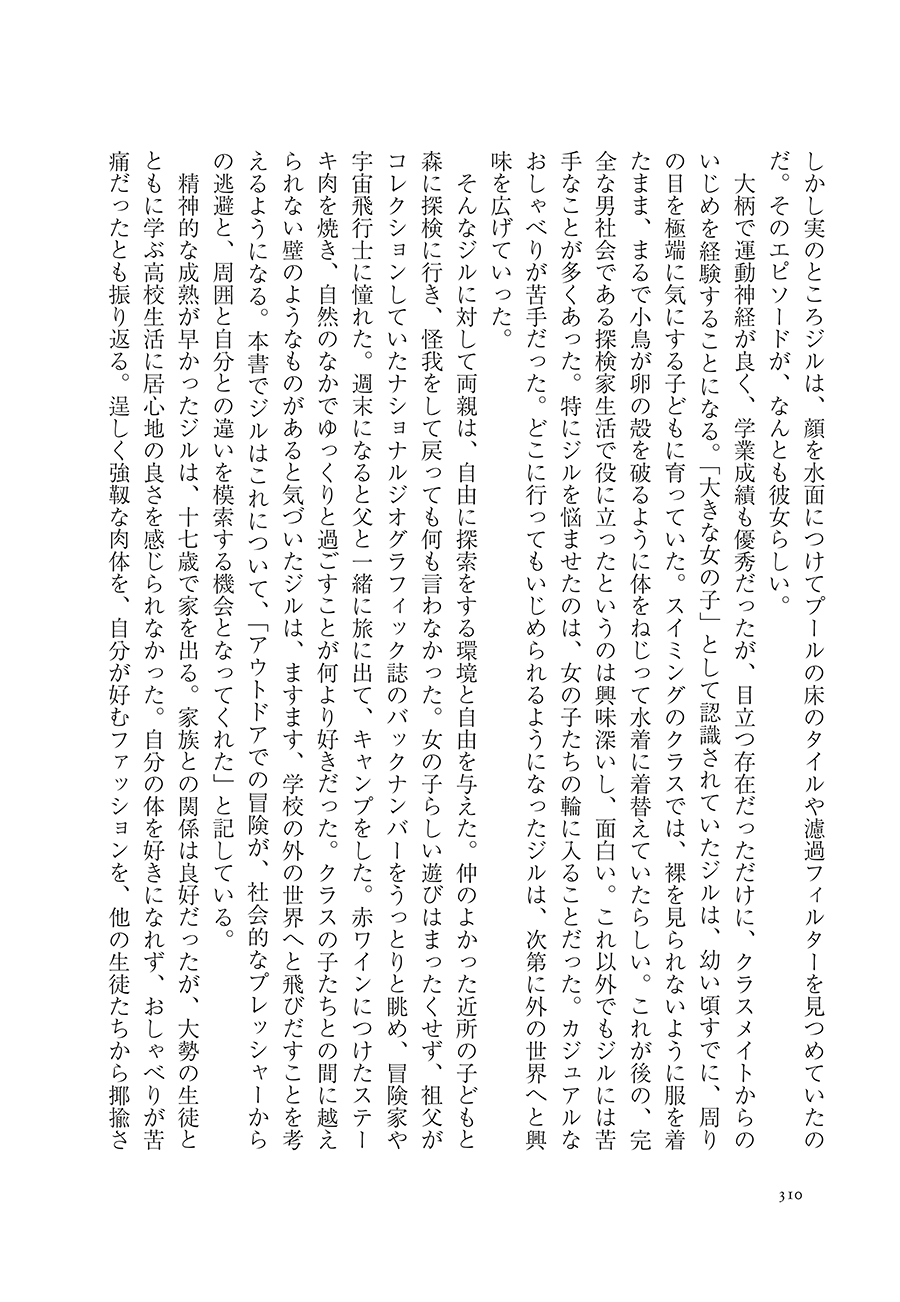 しかし実のところジルは、顔を水面につけてプールの床のタイルや濾過フィルターを見つめていたの
だ。そのエピソードが、なんとも彼女らしい。
大柄で運動神経が良く、学業成績も優秀だったが、目立つ存在だっただけに、クラスメイトからの
いじめを経験することになる。「大きな女の子」として認識されていたジルは、幼い頃すでに、周り
の目を極端に気にする子どもに育っていた。スイミングのクラスでは、裸を見られないように服を着
たまま、まるで小鳥が卵の殻を破るように体をねじって水着に着替えていたらしい。これが後の、完
全な男社会である探検家生活で役に立ったというのは興味深いし、面白い。これ以外でもジルには苦
手なことが多くあった。特にジルを悩ませたのは、女の子たちの輪に入ることだった。カジュアルな
おしゃべりが苦手だった。どこに行ってもいじめられるようになったジルは、次第に外の世界へと興
味を広げていった。
そんなジルに対して両親は、自由に探索をする環境と自由を与えた。仲のよかった近所の子どもと
森に探検に行き、怪我をして戻っても何も言わなかった。女の子らしい遊びはまったくせず、祖父が
コレクションしていたナショナルジオグラフィック誌のバックナンバーをうっとりと眺め、冒険家や
宇宙飛行士に憧れた。週末になると父と一緒に旅に出て、キャンプをした。赤ワインにつけたステー
キ肉を焼き、自然のなかでゆっくりと過ごすことが何より好きだった。クラスの子たちとの間に越え
られない壁のようなものがあると気づいたジルは、ますます、学校の外の世界へと飛びだすことを考
えるようになる。本書でジルはこれについて、「アウトドアでの冒険が、社会的なプレッシャーから
の逃避と、周囲と自分との違いを模索する機会となってくれた」と記している。
精神的な成熟が早かったジルは、十七歳で家を出る。家族との関係は良好だったが、大勢の生徒と
ともに学ぶ高校生活に居心地の良さを感じられなかった。自分の体を好きになれず、おしゃべりが苦
痛だったとも振り返る。逞しく強靱な肉体を、自分が好むファッションを、他の生徒たちから揶揄さ
310